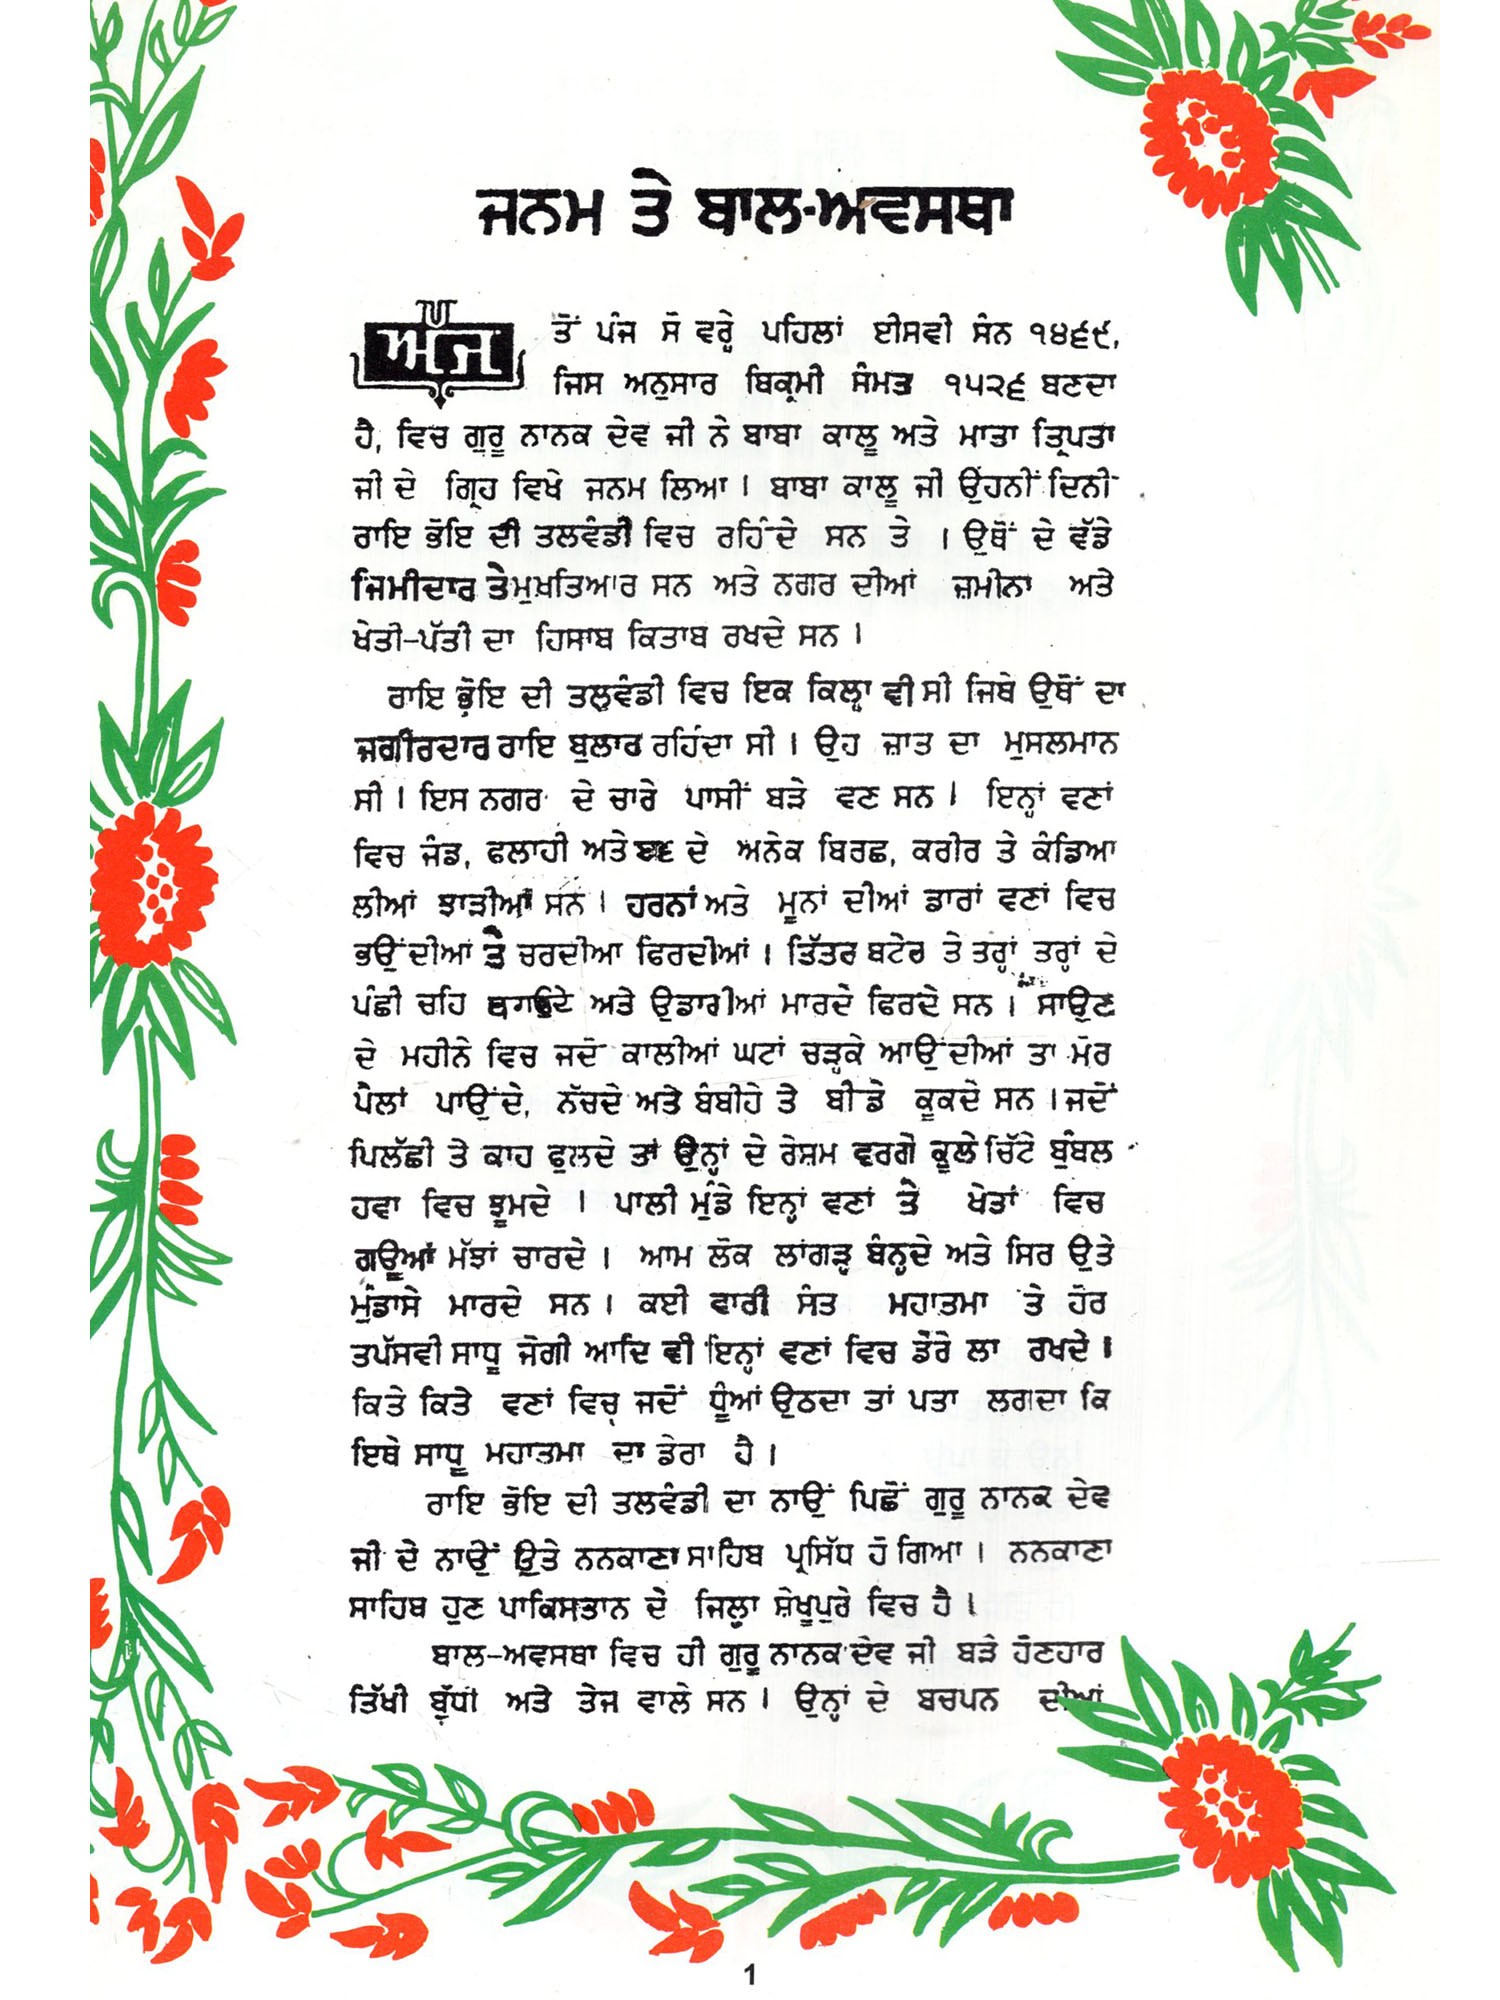 ਜਨਮ ਤੇ ਬਾਲ-ਅਵਸਥਾ
ਅੱਜ ਤੋਂ ਪੰਜ ਸੌ ਵਰ੍ਹੇ ਪਹਿਲਾਂ ਈਸਵੀ ਸੰਨ ੧੪੬੯,
ਜਿਸ ਅਨੁਸਾਰ ਬਿਕ੍ਰਮੀ ਸੰਮਤ ੧੫੨੬ ਬਣਦਾ
ਹੈ, ਵਿਚ ਗੁਰੂ ਨਾਨਕ ਦੇਵ ਜੀ ਨੇ ਬਾਬਾ ਕਾਲੂ ਅਤੇ ਮਾਤਾ ਤ੍ਰਿਪਤਾ
ਜੀ ਦੇ ਗ੍ਰਿਹ ਵਿਖੇ ਜਨਮ ਲਿਆ । ਬਾਬਾ ਕਾਲੂ ਜੀ ਉਂਹਨੀਂ ਦਿਨੀ
ਰਾਇ ਭੋਇ ਦੀ ਤਲਵੰਡੀ ਵਿਚ ਰਹਿੰਦੇ ਸਨ ਤੇ । ਉਥੋਂ ਦੇ ਵੱਡੇ
ਜਿਮੀਦਾਰ ਤੇ ਮੁਖ਼ਤਿਆਰ ਸਨ ਅਤੇ ਨਗਰ ਦੀਆਂ ਜ਼ਮੀਨਾ ਅਤੇ
ਖੇਤੀ-ਪੱਤੀ ਦਾ ਹਿਸਾਬ ਕਿਤਾਬ ਰਖਦੇ ਸਨ ।
ਰਾਇ ਭੋਇ ਦੀ ਤਲਵੰਡੀ ਵਿਚ ਇਕ ਕਿਲ੍ਹਾ ਵੀ ਸੀ ਜਿਥੇ ਉਥੋਂ ਦਾ
ਜਗੀਰਦਾਰ ਰਾਇ ਬੁਲਾਰ ਰਹਿੰਦਾ ਸੀ । ਉਹ ਜ਼ਾਤ ਦਾ ਮੁਸਲਮਾਨ
ਸੀ । ਇਸ ਨਗਰ ਦੇ ਚਾਰੇ ਪਾਸੀਂ ਬੜੇ ਵਣ ਸਨ । ਇਨ੍ਹਾਂ ਵਣਾਂ
ਵਿਚ ਜੰਡ, ਫਲਾਹੀ ਅਤੇ ਦੇ ਅਨੇਕ ਬਿਰਛ, ਕਰੀਰ ਤੇ ਕੰਡਿਆ
ਲੀਆਂ ਝਾੜੀਆਂ ਸਨ । ਹਰਨਾਂ ਅਤੇ ਮੂਨਾਂ ਦੀਆਂ ਡਾਰਾਂ ਵਣਾਂ ਵਿਚ
ਭਉਂਦੀਆਂ ਤੇ ਚਰਦੀਆ ਫਿਰਦੀਆਂ । ਤਿੱਤਰ ਬਟੇਰ ਤੇ ਤਰ੍ਹਾਂ ਤਰ੍ਹਾਂ ਦੇ
ਪੰਛੀ ਚਹਿ ਅਤੇ ਉਡਾਰੀਆਂ ਮਾਰਦੇ ਫਿਰਦੇ ਸਨ । ਸਾਉਣ
ਦੇ ਮਹੀਨੇ ਵਿਚ ਜਦੋਂ ਕਾਲੀਆਂ ਘਟਾਂ ਚੜ੍ਹਕੇ ਆਉਂਦੀਆਂ ਤਾ ਮੋਰ
ਪੈਲਾਂ ਪਾਉਂਦੇ, ਨੱਚਦੇ ਅਤੇ ਬੰਬੀਹੇ ਤੇ ਬੀਂਡੇ ਕੂਕਦੇ ਸਨ । ਜਦੋਂ
ਪਿਲੱਛੀ ਤੇ ਕਾਹ ਫੁਲਦੇ ਤਾਂ ਉਨ੍ਹਾਂ ਦੇ ਰੇਸ਼ਮ ਵਰਗੇ ਕੂਲੇ ਚਿੱਟੇ ਬੁੰਬਲ
ਹਵਾ ਵਿਚ ਝੂਮਦੇ । ਪਾਲੀ ਮੁੰਡੇ ਇਨ੍ਹਾਂ ਵਣਾਂ ਤੇ ਖੇਤਾਂ ਵਿਚ
ਗਊਆਂ ਮੱਝਾਂ ਚਾਰਦੇ । ਆਮ ਲੋਕ ਲਾਂਗੜ੍ਹ ਬੰਨ੍ਹਦੇ ਅਤੇ ਸਿਰ ਉਤੇ
ਮੁੰਡਾਸੇ ਮਾਰਦੇ ਸਨ । ਕਈ ਵਾਰੀ ਸੰਤ ਮਹਾਤਮਾ ਤੇ ਹੋਰ
ਤਪੱਸਵੀ ਸਾਧੂ ਜੋਗੀ ਆਦਿ ਵੀ ਇਨ੍ਹਾਂ ਵਣਾਂ ਵਿਚ ਡੇਰੇ ਲਾ ਰਖਦੇ ।
ਕਿਤੇ ਕਿਤੇ ਵਣਾਂ ਵਿਚ ਜਦੋਂ ਧੂੰਆਂ ਉਠਦਾ ਤਾਂ ਪਤਾ ਲਗਦਾ ਕਿ
ਇਥੇ ਸਾਧੂ ਮਹਾਤਮਾ ਦਾ ਡੇਰਾ ਹੈ ।
ਰਾਇ ਭੋਇ ਦੀ ਤਲਵੰਡੀ ਦਾ ਨਾਉਂ ਪਿਛੋਂ ਗੁਰੂ ਨਾਨਕ ਦੇਵ
ਜੀ ਦੇ ਨਾਉਂ ਉਤੇ ਨਨਕਾਣਾ ਸਾਹਿਬ ਪ੍ਰਸਿੱਧ ਹੋ ਗਿਆ । ਨਨਕਾਣਾ
ਸਾਹਿਬ ਹੁਣ ਪਾਕਿਸਤਾਨ ਦੇ ਜਿਲ੍ਹਾ ਸ਼ੇਖੂਪੁਰੇ ਵਿਚ ਹੈ ।
ਬਾਲ-ਅਵਸਥਾ ਵਿਚ ਹੀ ਗੁਰੂ ਨਾਨਕ ਦੇਵ ਜੀ ਬੜੇ ਹੋਣਹਾਰ
ਤਿੱਖੀ ਬੁੱਧੀ ਅਤੇ ਤੇਜ ਵਾਲੇ ਸਨ । ਉਨ੍ਹਾਂ ਦੇ ਬਚਪਨ ਦੀਆਂ
1